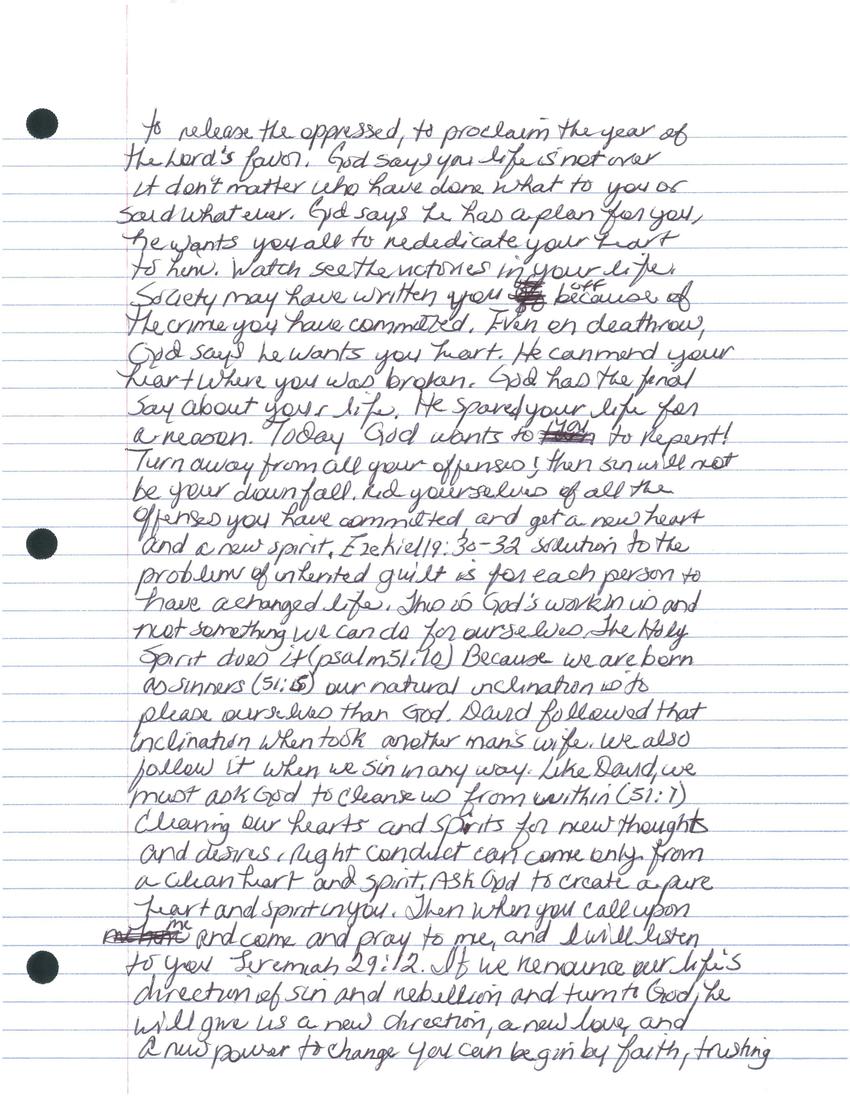 to release the oppressed, to proclaim the year of
the Lord's favor. God says you life is not over
it don't matter who have done what to you or
said what ever. God says he has a plan for you,
he wants you all to rededicate your heart
to him. Watch see the victories in your life.
Society may have written you off because of
the crime you have committed. Even on deathrow,
God says he wants you heart. He can mend your
heart where you was broken. God has the final
say about your life. He spared your life for
a reason. Today God wants to you to repent!
Turn away from all your offenses; then sin will not
be your downfall. Rid yourselves of all the
offenses you have committed, and get a new heart
and a new spirit. Ezekiel 19:30-32 solution to the
problem of inherited guilt is for each person to
have a changed life. This is God's work in us and
not something we can do for ourselves. The Holy
Spirit does it (psalm 51:10) Because we are born
as sinners (51:5) our natural inclination is to
please ourselves than God. David followed that
inclination when took another man's wife. We also
follow it when we sin in any way. Like David, we
must ask God to cleanse us from within (51:7)
Clearing our hearts and spirits for new thoughts
and desires. Right conduct can come only from
a clean heart and spirit. Ask God to create a pure
heart and spirit in you. Then when you call upon
me And come and pray to me, and I will listen
to you Jeremiah 29:12. If we renounce our life's
direction of sin and rebellion and turn to God, he
will give us a new direction, a new love, and
a new power to change you can begin by faith, trusting